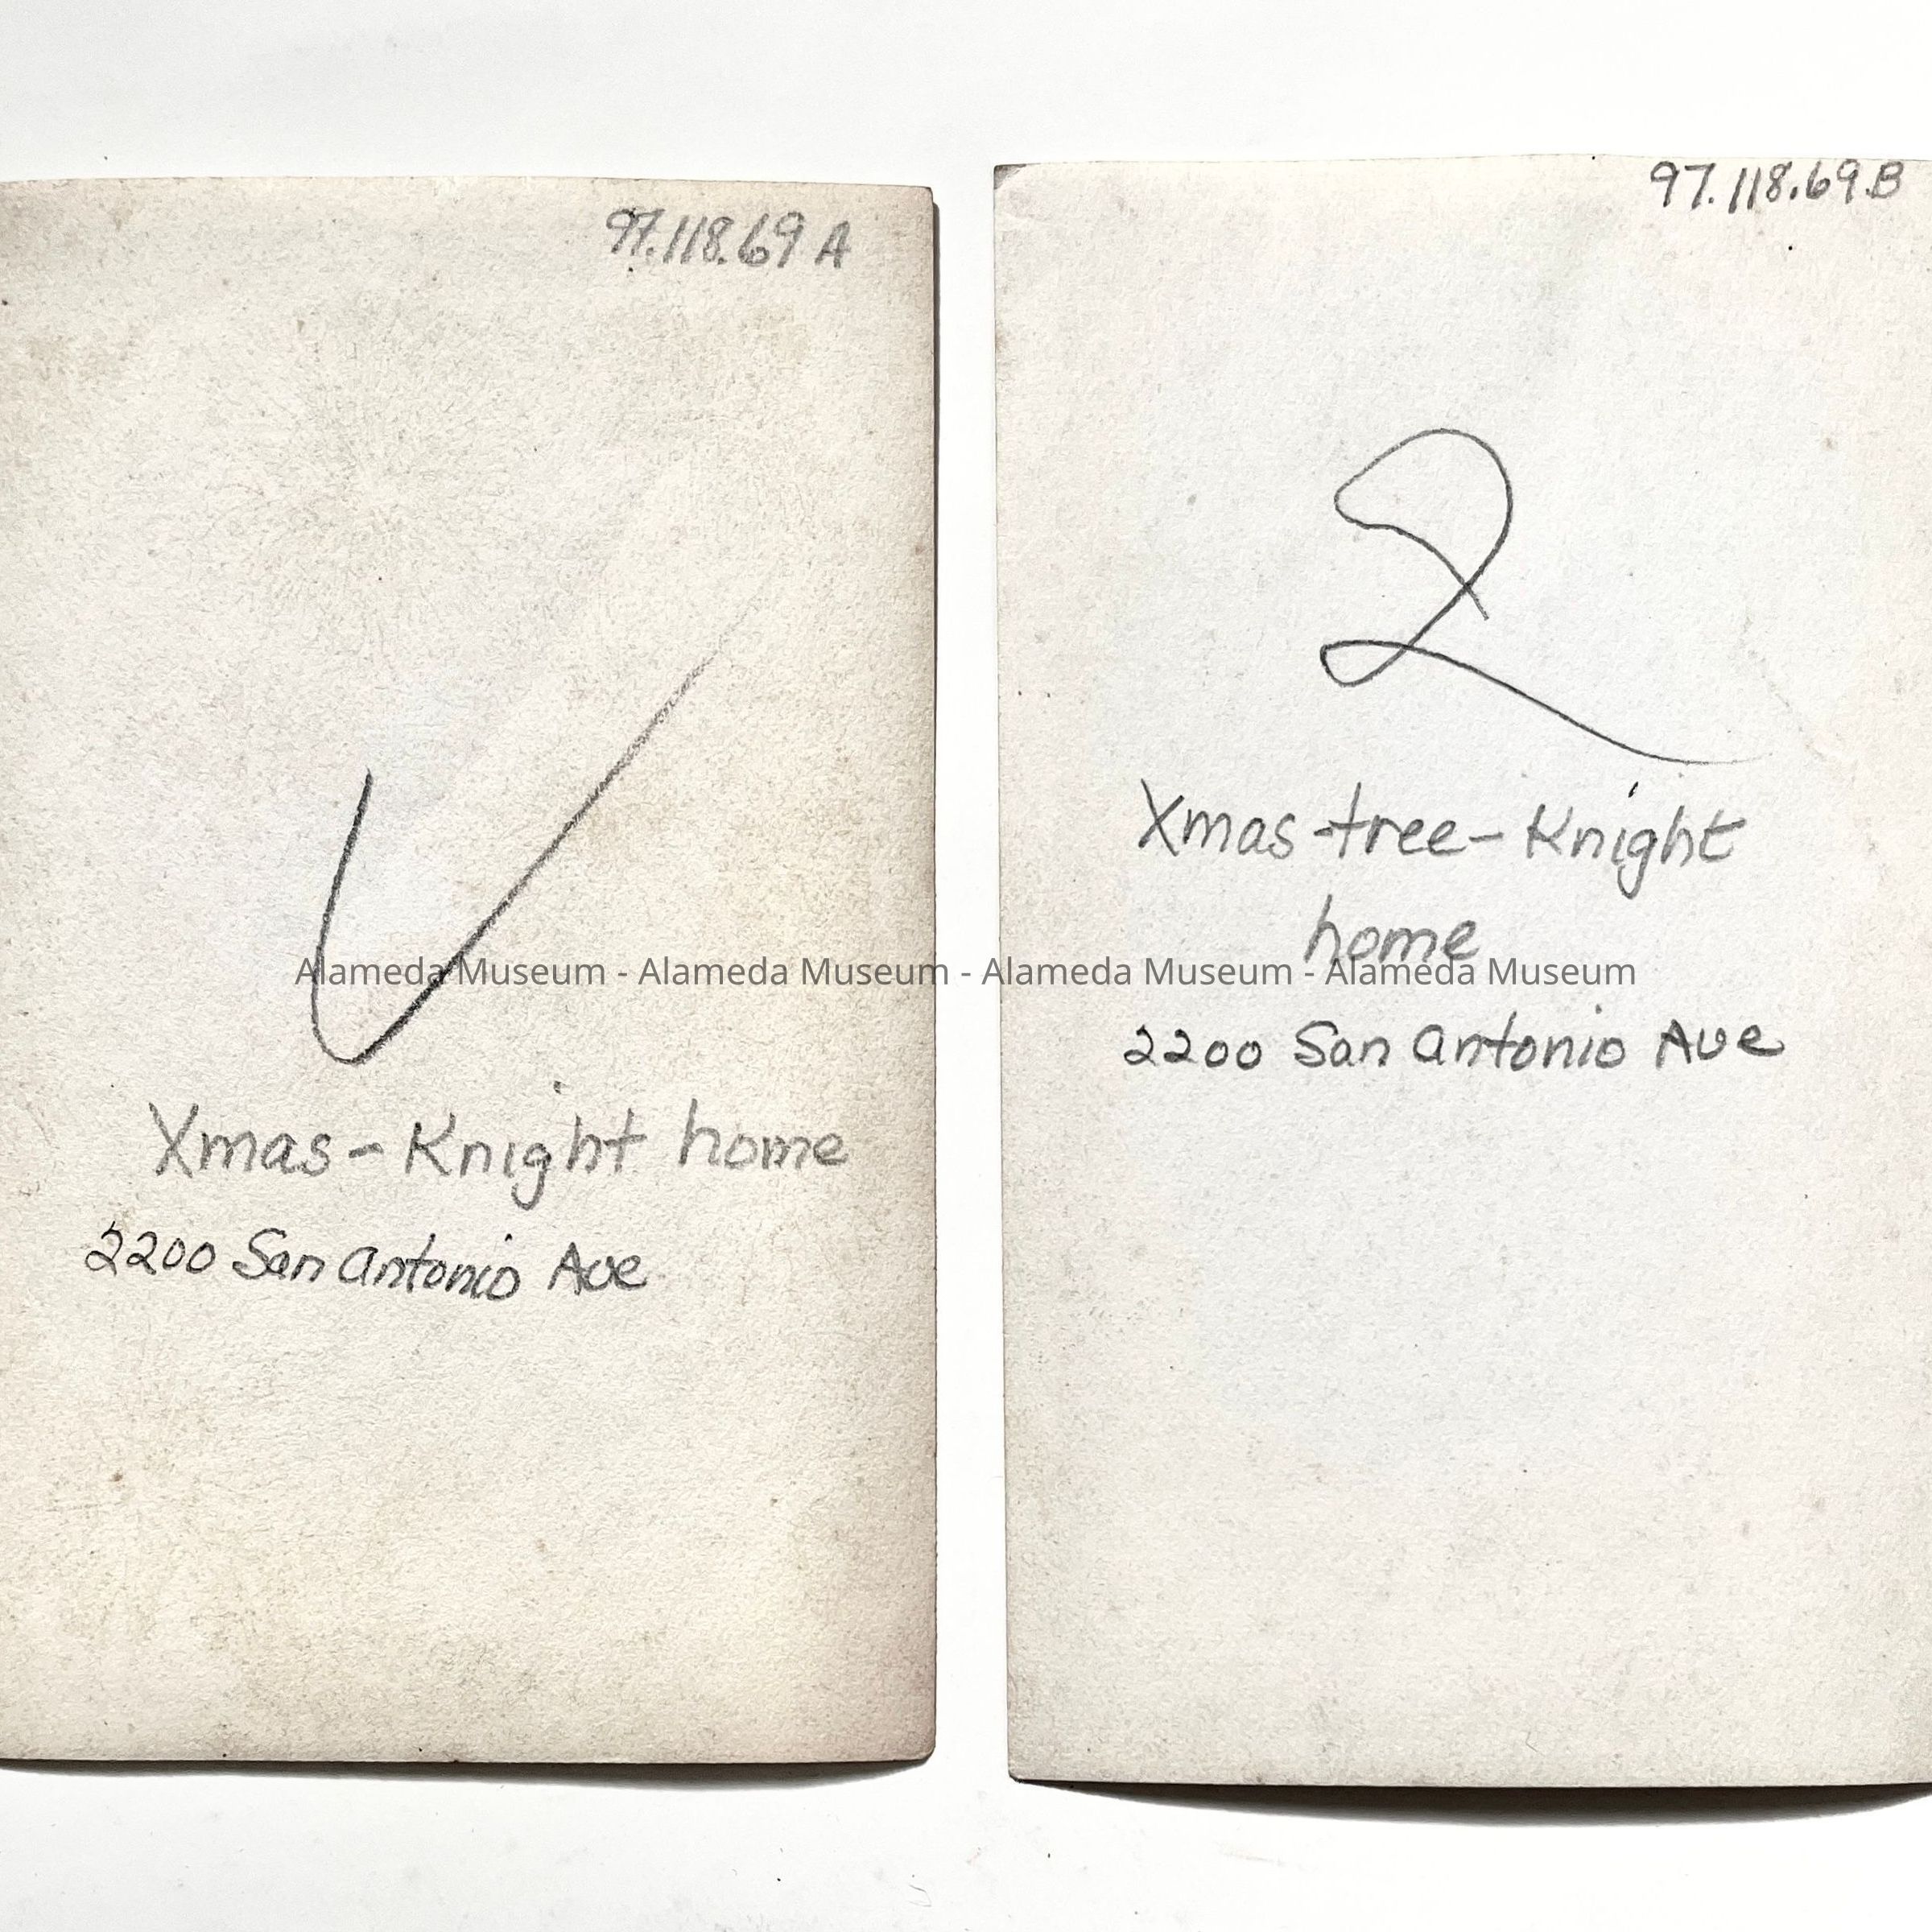 97.118.69 A
Xmas - Knight home
2200 San Antonio Ave
97.118.69.B
2
Xmas-tree-Knight
home
2200 San Antonio Ave
Alameda Museum - Alameda Museum - Alameda Museum - Alameda Museum